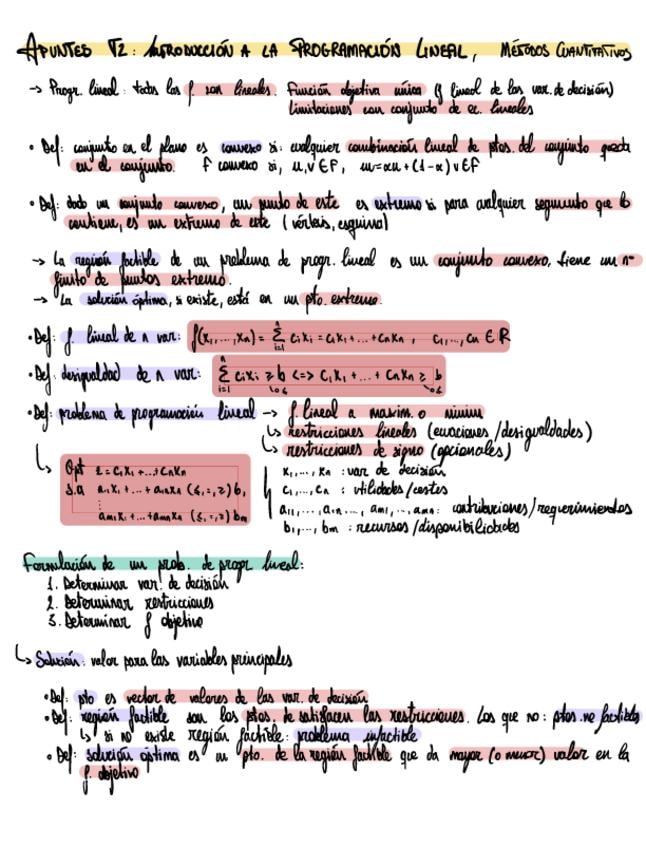 APUNTES T2: INTRODUCCIÓN A LA PROGRAMACIÓN LINEAL, MÉTODOS CUANTITATIVOS
→ Progr. lineal: todas las f son lineales. Función objetivo única (f lineal de las var. de decisión)
Limitaciones son conjunto de ec. lineales
• Def: conjunto en el plano es convexo si: cualquier combinación lineal de ptos. del conjunto queda
en el conjunto. F convexo si, u,v ∈ F, w=αu+(1-α)v ∈ F
• Def: dado un conjunto convexo, un punto de este es extremo si para cualquier segmento que lo
contiene, es un extremo de este (vérteis, esquina)
→ La región factible de un problema de progr. lineal es un conjunto convexo, tiene un nº
finito de puntos extremo.
→ La solución óptima, si existe, está en un pto. extremo.
• Def: f. lineal de n var: f(x₁,...,xn) = n Σ i=1 cixi = c₁x₁+...+cnxn , c₁,...,cn ∈ R
• Def: desigualdad de n var: n Σ i=1 cixi ≥ b <=> c₁x₁+...+cnxn ≥ b
↳ o ≤ ↳ o ≤
• Def: problema de programación lineal → f. lineal a maxim. o minim
↳ restricciones lineales (ecuaciones/desigualdades)
↳ restricciones de signo (opcionales)
↳ Opt z = c₁x₁+...+cnxn
s.a a₁₁x₁+...+a₁nxn (≤,=,≥) b₁
⋮
am₁x₁+...+amnxn (≤,=,≥) bm
x₁,..., xn : var de decisión
c₁,..., cn : utilidades/costes
a₁₁,..., a₁n..., am₁,..., amn: contribuciones/requerimientos
b₁,..., bm : recursos/disponibilidades
Formulación de un prob. de progr. lineal:
1. Determinar var. de decisión
2. Determinar restricciones
3. Determinar f objetivo
↳ Solución: valor para las variables principales
• Def: pto es vector de valores de las var. de decisión
• Def: región factible son los ptos. de satisfacen las restricciones. Los que no: ptos. no factibles
↳ si no existe región factible: problema infactible
• Def: solución óptima es un pto. de la región factible que da mayor (o menor) valor en la
f. objetivo